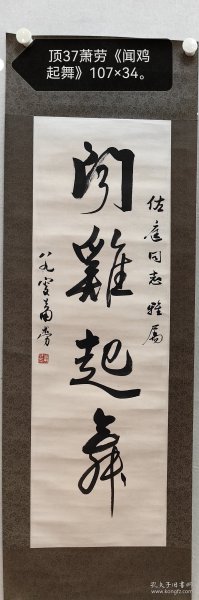 顶37萧劳《闻鸡
起舞》107×34。
佐庭同志雅属
闻鸡起舞
八九叟萧劳
孔夫子旧书网